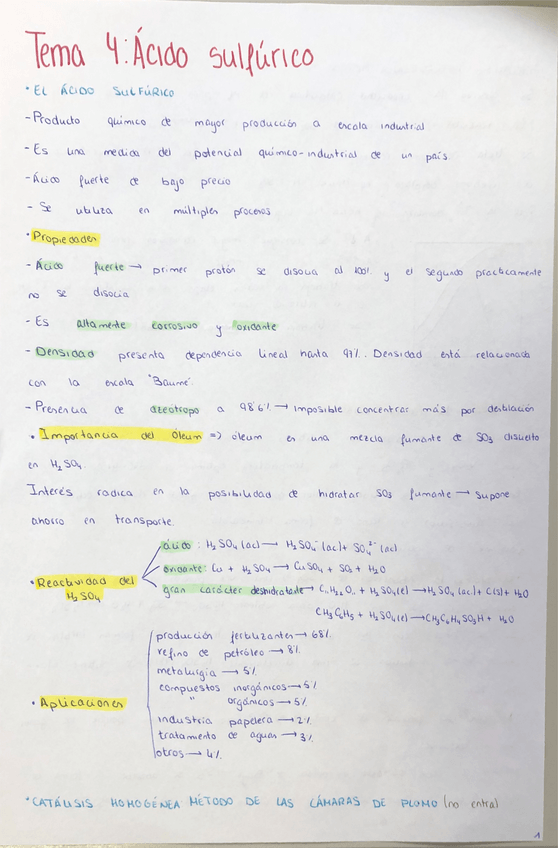 Tema 4: Ácido sulfúrico
• EL ÁCIDO SULFÚRICO
- Producto químico de mayor producción a escala industrial
- Es una medida del potencial químico-industrial de un país
- Ácido fuerte de bajo precio
- Se utiliza en múltiples procesos
• Propiedades
- Ácido fuerte → primer protón se disocia al 100% y el segundo practicamente
no se disocia
- Es altamente corrosivo y oxidante
- Densidad presenta dependencia lineal hasta 97%. Densidad está relacionada
con la escala "Baumé".
- Presencia de azeótropo a 98'6% → imposible concentrar más por destilación
• Importancia del óleum => óleum es una mezcla fumante de SO₃ disuelto
en H₂SO₄.
Interés radica en la posibilidad de hidratar SO₃ fumante → supone
ahorro en transporte.
• Reactividad del
H₂SO₄
ácido: H₂SO₄ (ac) → H₂SO₄⁻ (ac) + SO₄²⁻ (ac)
oxidante: Cu + H₂SO₄ → CuSO₄ + SO₂ + H₂O
gran carácter deshidratante → C₁₁H₂₂O₁₁ + H₂SO₄(l) → H₂SO₄ (ac) + C(s) + H₂O
CH₃C₆H₅ + H₂SO₄(l) → CH₃C₆H₄SO₃H + H₂O
• Aplicaciones
producción fertilizantes → 68%
refino de petróleo → 8%
metalurgia → 5%
compuestos inorgánicos → 5%
" orgánicos → 5%
industria papelera → 2%
tratamiento de aguas → 3%
otros → 4%
• CATÁLISIS HOMOGÉNEA MÉTODO DE LAS CÁMARAS DE PLOMO (no entra)
1